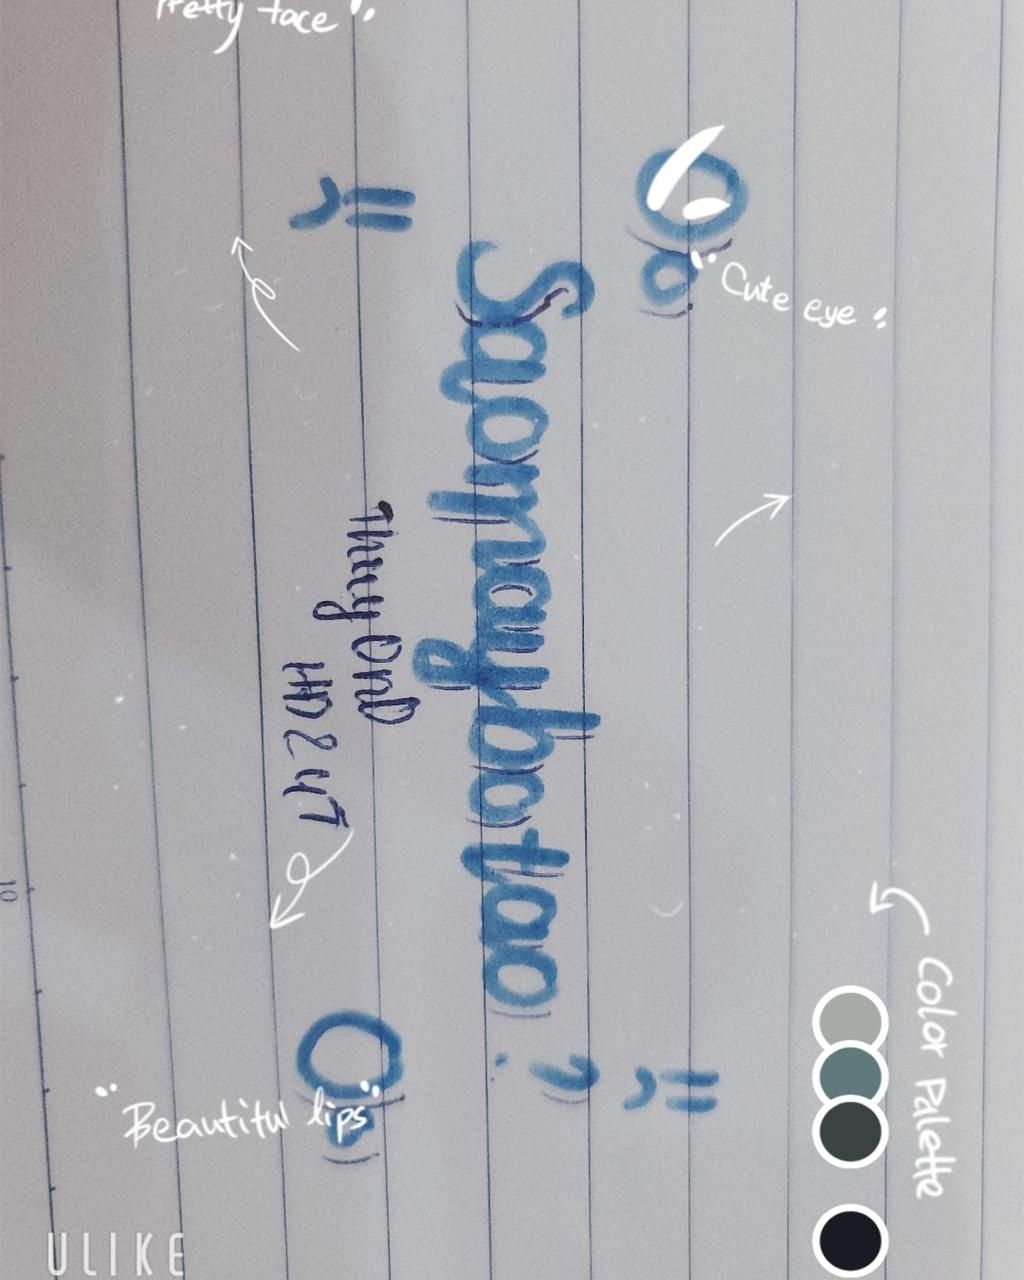 Pretty face
"Cute eye"
Saomaybotao?
ThuyOnD
HD247
"Beautiful lips"
Color Palette
10
ULIKE